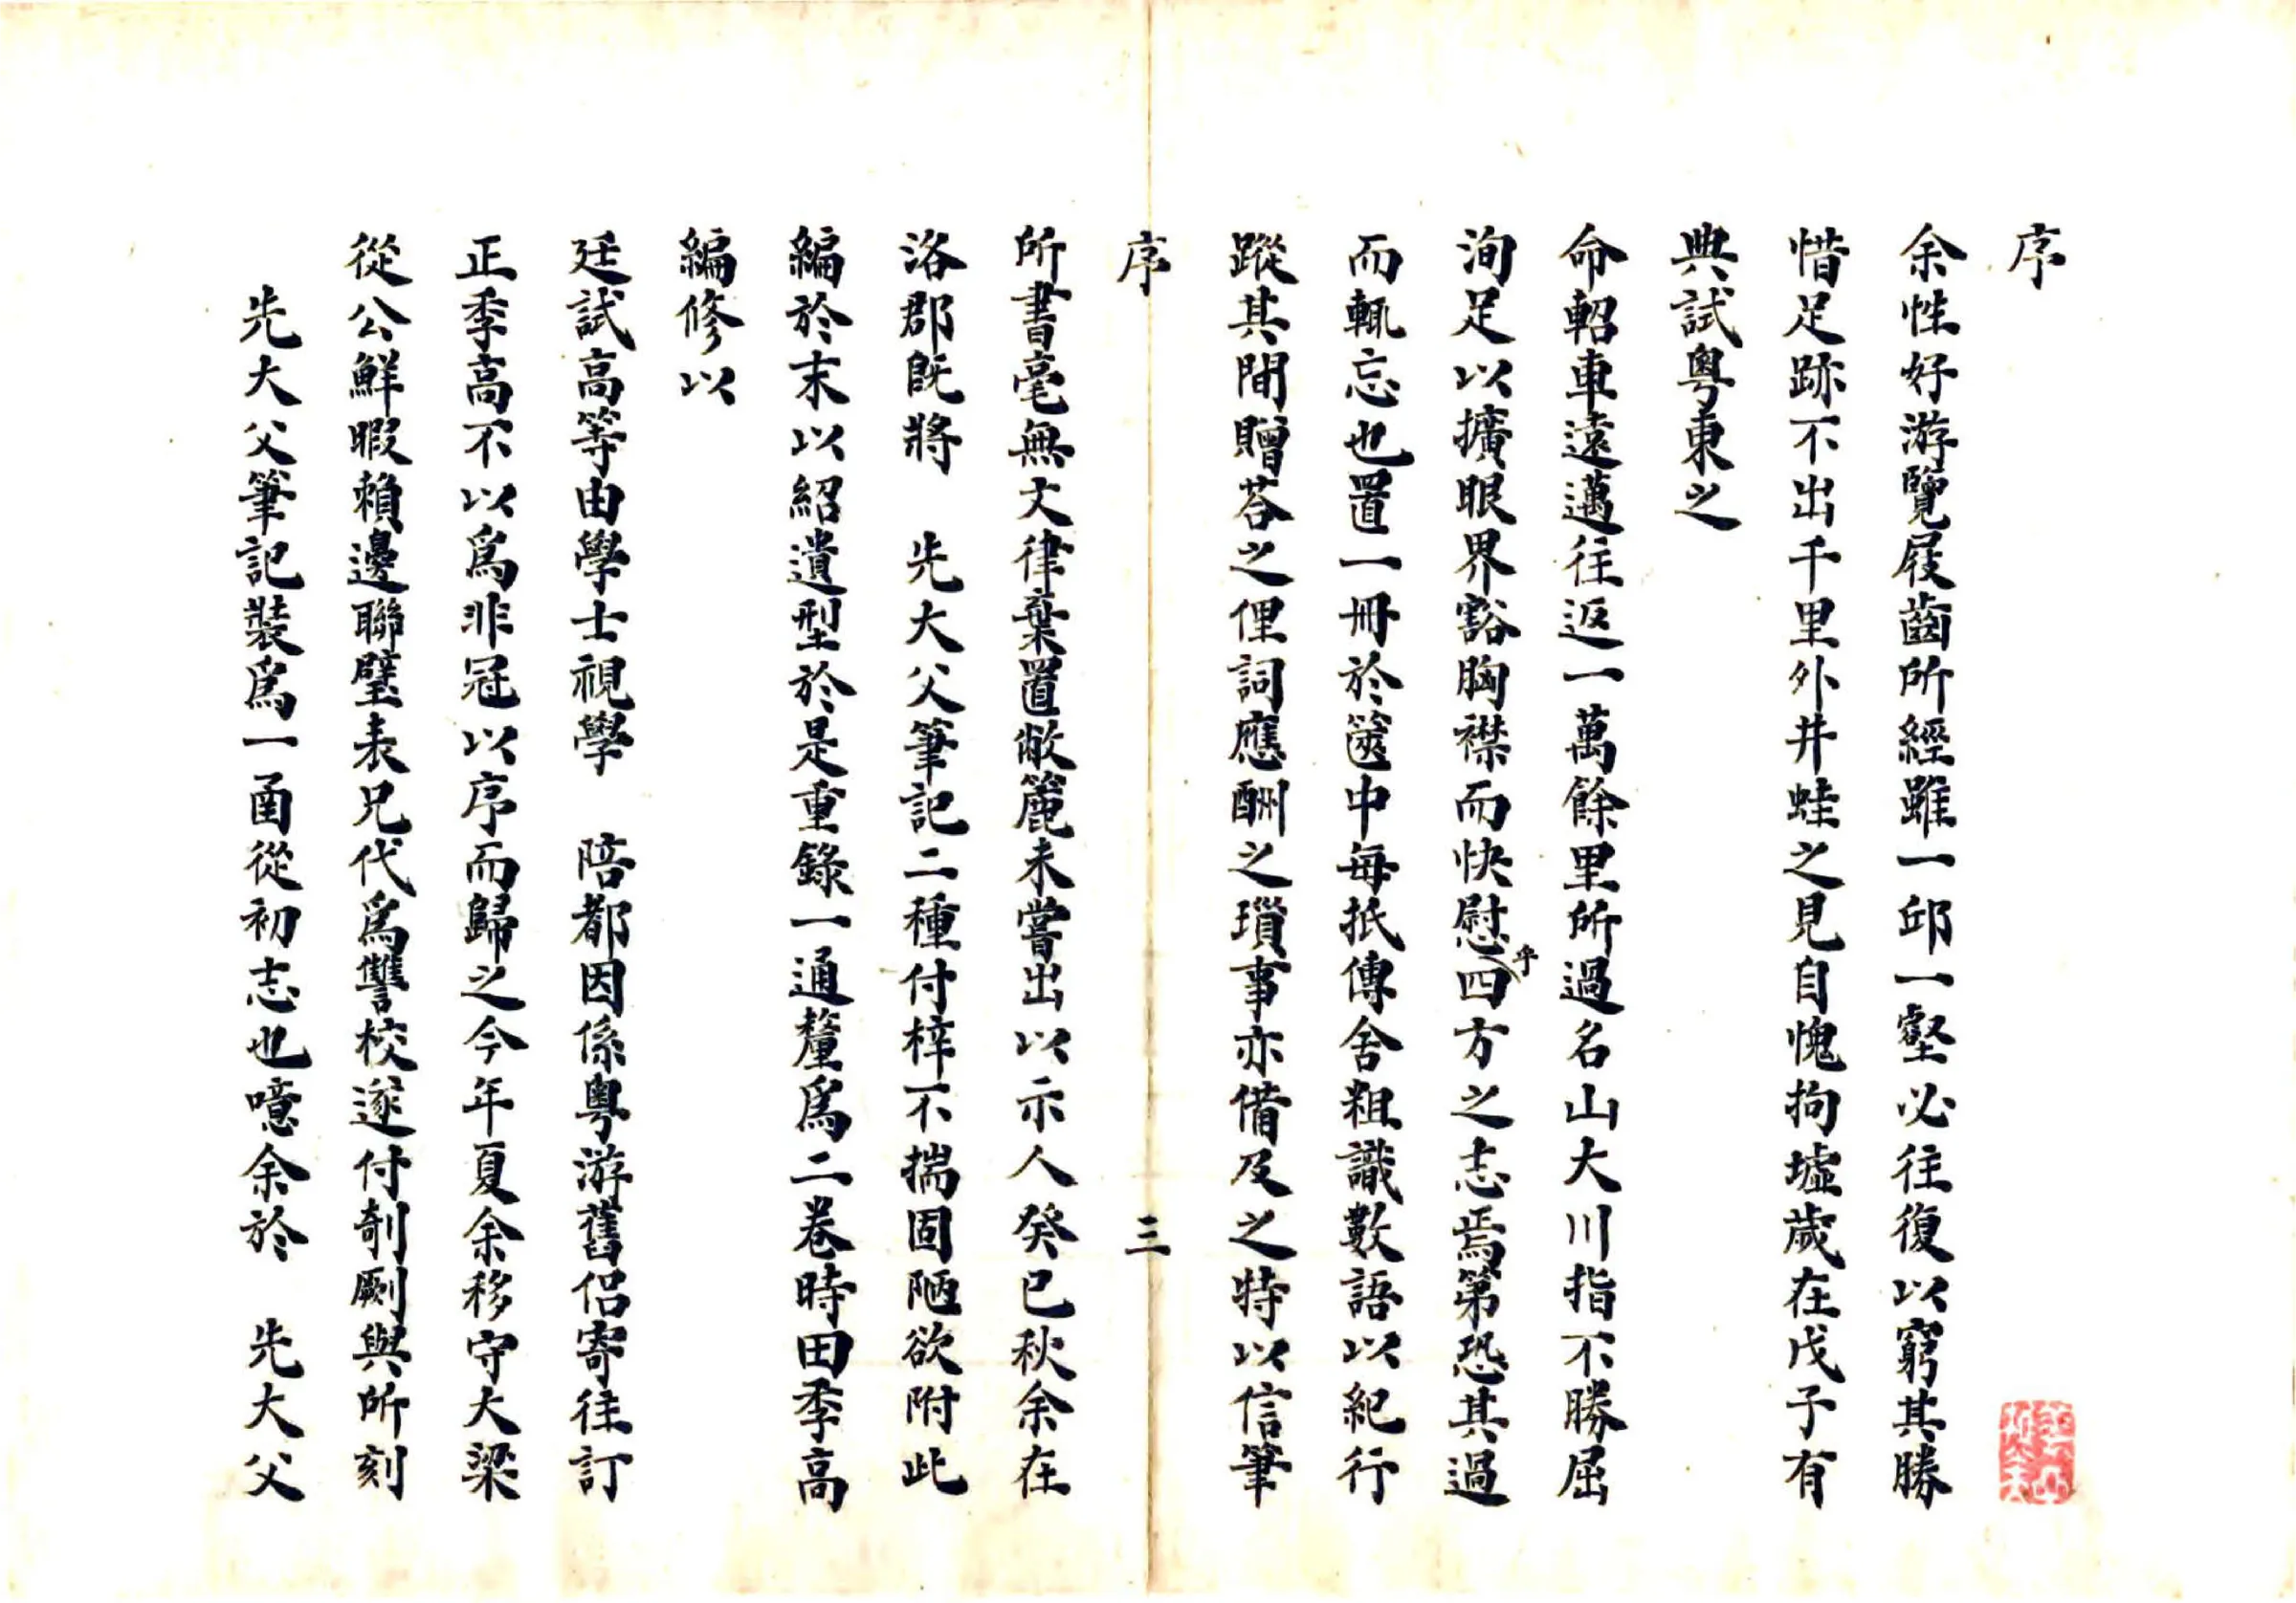 序
余性好游覽屐齒所經雖一邱一壑必往復以窮其勝
惜足跡不出千里外井蛙之見自愧拘墟歲在戊子有
典試粵東之
命軺車遠邁往返一萬餘里所過名山大川指不勝屈
洵足以擴眼界豁胸襟而快慰乎四方之志焉第恐其過
而輒忘也置一冊於篋中每抵傳舍粗識數語以紀行
蹤其間贈荅之俚詞應酬之瑣事亦備及之特以信筆
序 三
所書毫無文律棄置敝簏未嘗出以示人癸巳秋余在
洛郡旣將 先大父筆記二種付梓不揣固陋欲附此
編於末以紹遺型於是重錄一通釐爲二卷時田季高
編修以
廷試高等由學士視學 陪都因係粵游舊侶寄往訂
正季高不以爲非冠以序而歸之今年夏余移守大梁
從公鮮暇賴邊聯璧表兄代爲讐校遂付剞劂與所刻
先大父筆記裝爲一函從初志也噫余於 先大父